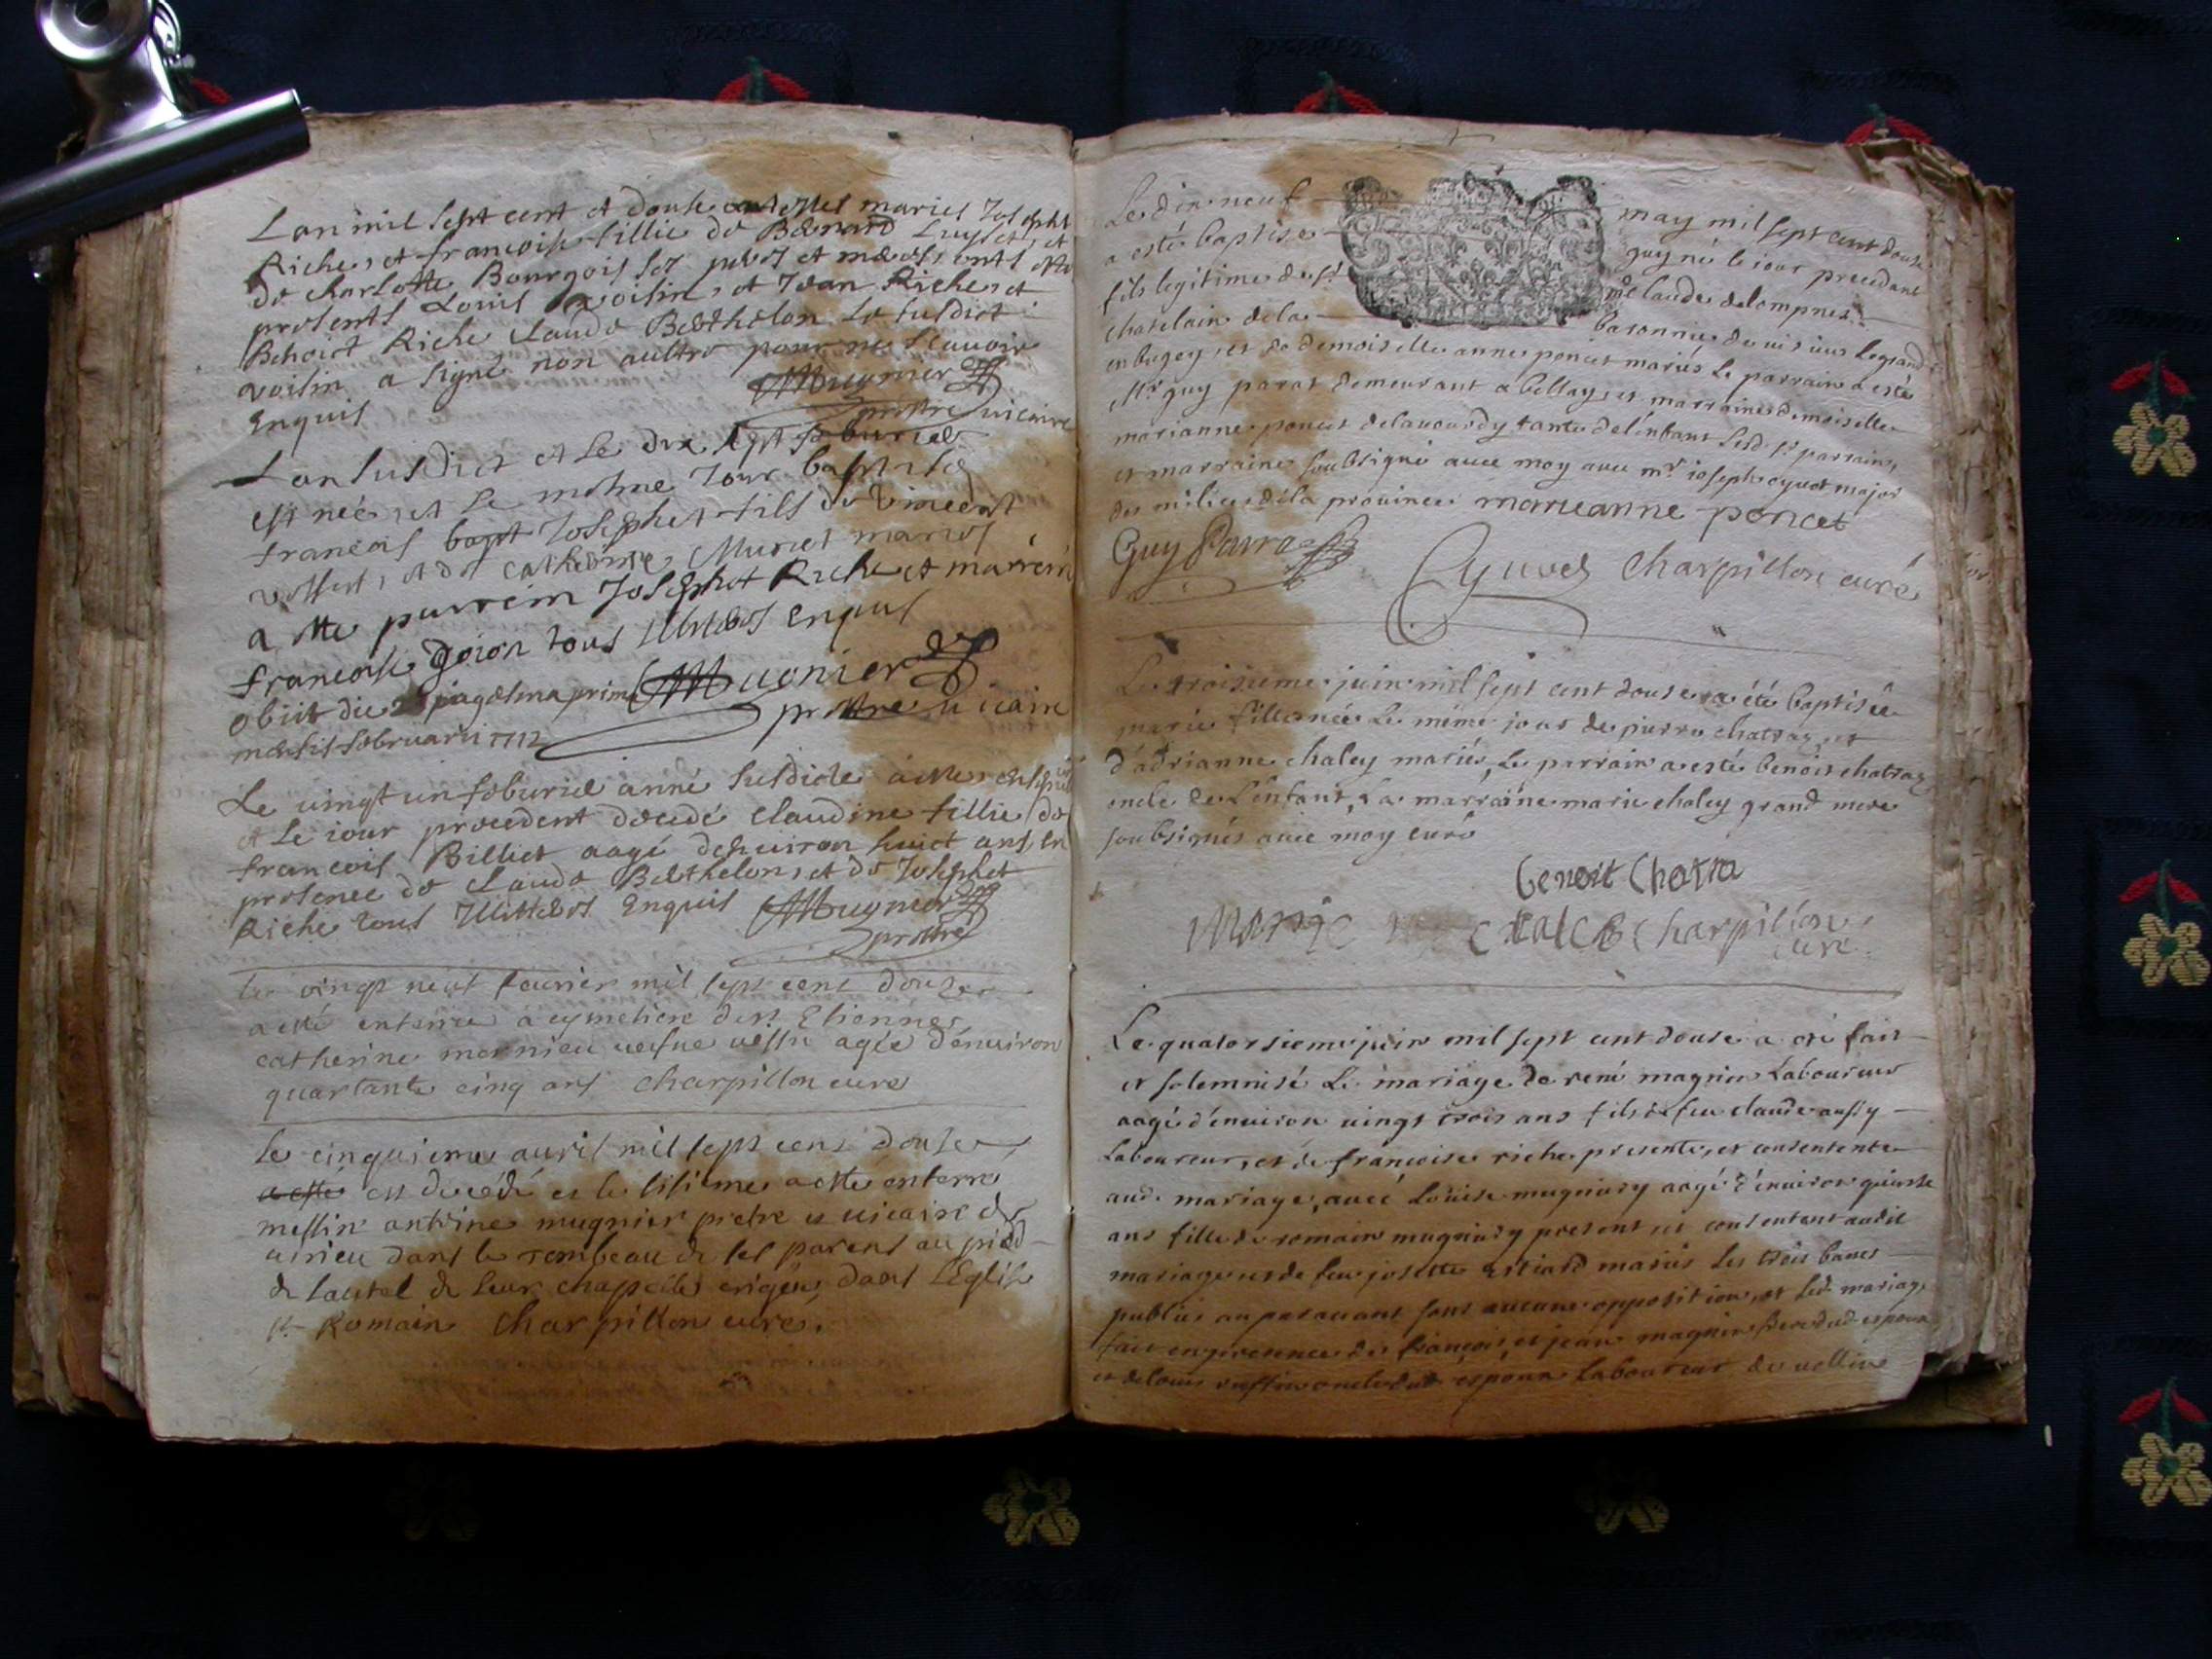 Lan mil sept cent et douse ont estes maries Josepht
Riche, et francoise fillie de Bernard Luyset, et
de charlotte Bourgois ses peres et meres, ont este
presents Louis voisin, et Jean Riche, et
Benoict Riche Claude Berthelon Le susdict
voisin a signé non aultre pour ne scauoir
Enquis Mugnier
prestre uicaire
Lan susdict et Le dix sept feburier
est neé, et Le mesme Jour baptisé
francois Josepht fils de Vincent
et de Catherine Muriet maries
a este parrein Josepht Riche et marrein
francoise Goion tous Illiteres Enquis
Mugnier
obiit die uigesima prima prestre uicaire
mensis februarii 1712
Le uingt un feburier anné susdicte a este
et Le iour precedent decedé Claudine fillie de
francois Billiet aagé denuiron huict ans en
presence de Claude Berthelon, et de Josepht
Riche tous Illitteres Enquis Mugnier
prestre
le vingt neuf feurier mil sept cens douze
a esté enterrée a cymetiere de st. Etienne
catherine mornieu uefue agée d'enuiron
quarlante cinq ans Charpillon curé
Le cinquieme auril mil sept cens douse
a esté est decedé et le sisieme a este enterre
messire antoine mugnier pretre et uicaire de
uirieu dans le tombeau de ses parens au pied
de lautel de leur chapelle erigée dans l'Eglise
st Romain Charpillon curé.
Le dix neuf may mil sept cent douse
a esté baptisé guy né le iour precedant
fils legitime de sr claude delompnes
chatelain dela baronnie de uirieu Legrand
en bugey, et de demoiselle anne poncet mariés Le parrain a esté
Mr guy parat demeurant a bellay, et marraine demoiselle
marianne poncet delauourdy tante de l'enfant Lesd. sr parrain,
et marraine soubsigné auec moy auec mr ioseph cyuet major
des milices dela prouince marieanne poncet
Guy Parra Cyuoct Charpillon curé
Le troisieme juin mil sept cent douse a été baptisée
marie fille née Le même jour de pierre chatraz, et
d'adrianne chaley mariés, Le parrain a esté benoit chatraz
oncle de L'enfant, La marraine marie chaley grand mere
soubsignés auec moy curé
benoit Chatra
Marie Charpillon
curé
Le quatorsieme juin mil sept cent douse a été fait
et solemnisé Le mariage de rené magnin Laboureur
aagé d'enuiron uingt trois ans fils de feu claude aussy
Laboureur, et de françoise riche presente, et consentente
aud. mariage, auec Louise mugniery aagé d'enuiron quinse
ans fille de romain mugniery present et consentant audit
mariage et de feu josette estiard mariés Les trois bancs
publiés auparauant sans aucune opposition, et Led. mariage
fait en presence de françois, et jean magnin frere dud. espoux
et de louis ruffin oncle dud. espoux Laboureur de uollin